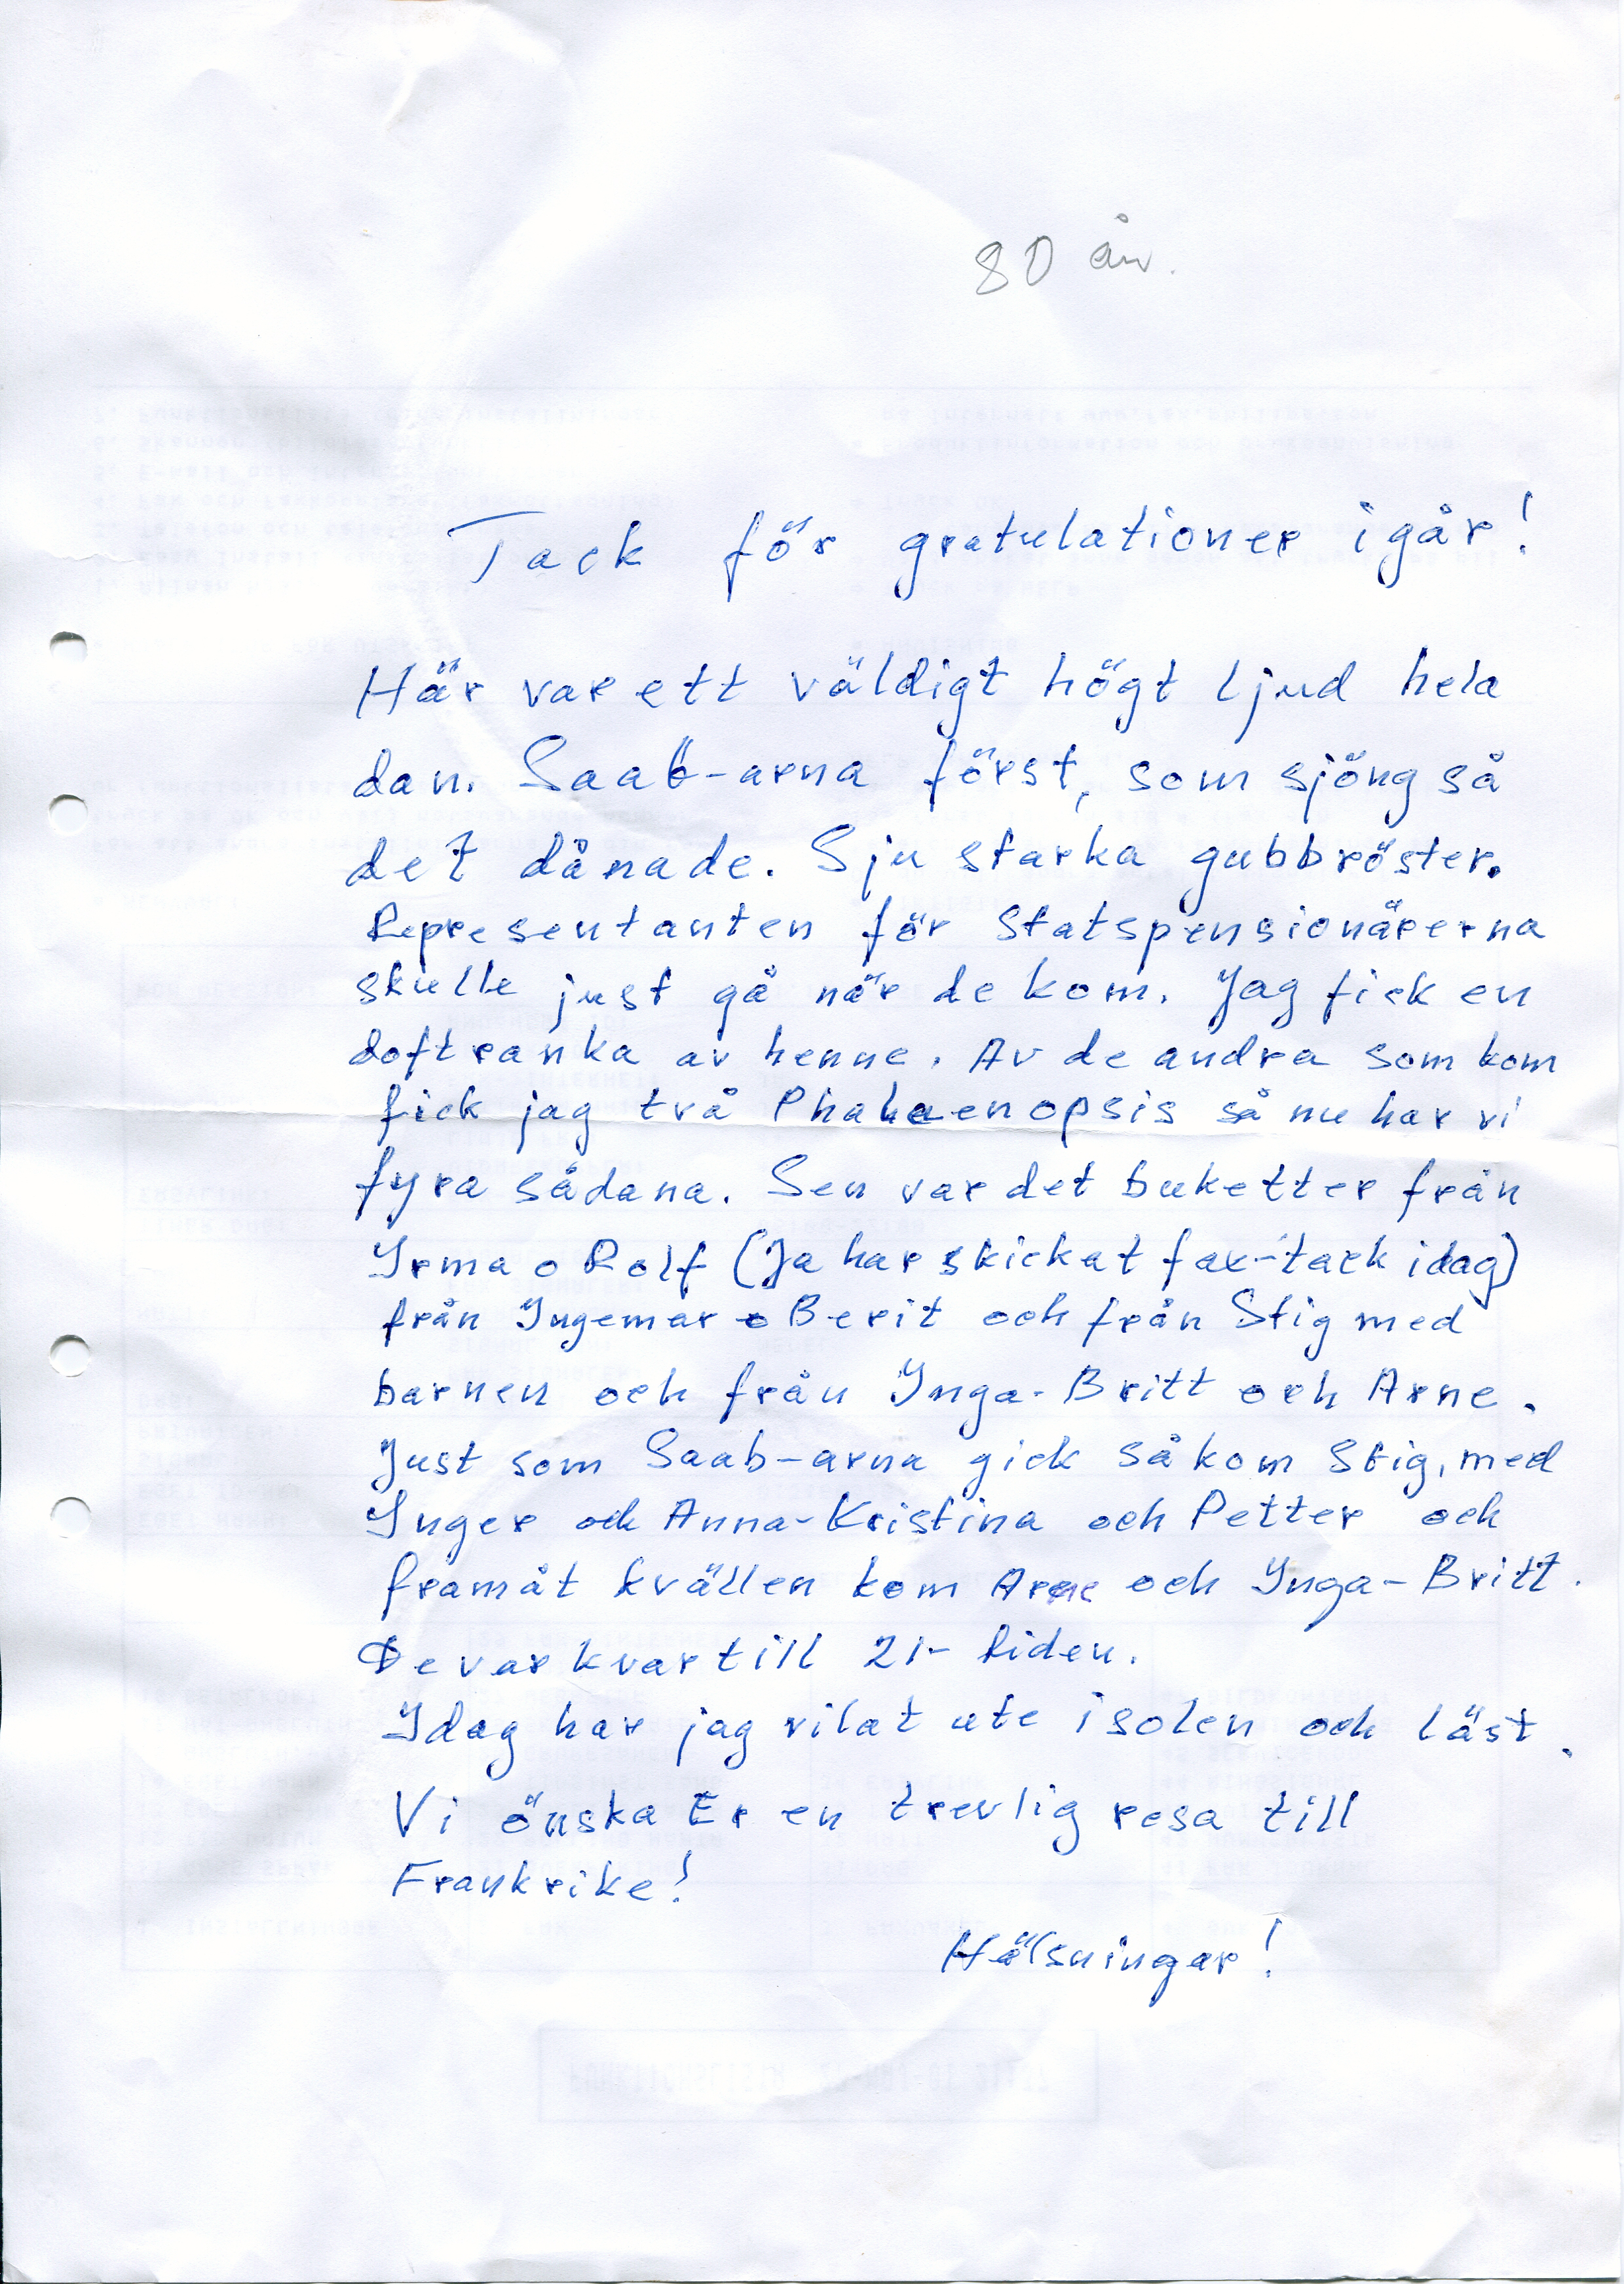 80 år.
Tack för gratulationer igår!
Här var ett väldigt högt ljud hela
dan. Saab-arna först, som sjöng så
det dånade. Sju starka gubbröster.
Representanten för Statspensionärerna
skulle just gå när de kom. Jag fick en
doftranka av henne. Av de andra som kom
fick jag två Phalaenopsis så nu har vi
fyra sådana. Sen var det buketter från
Irma o Rolf (Ja har skickat fax-tack idag)
från Ingemar o Berit och från Stig med
barnen och från Inga-Britt och Arne.
Just som Saab-arna gick så kom Stig, med
Inger och Anna-Kristina och Petter och
framåt kvällen kom Arne och Inga-Britt.
De var kvar till 21-tiden.
Idag har jag vilat ute i solen och läst.
Vi önska Er en trevlig resa till
Frankrike!
Hälsningar!